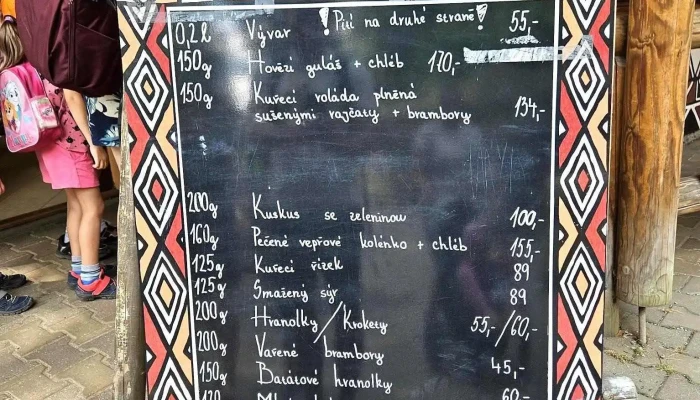 ! Pití na druhé straně !
0,2 l Vývar 55,-
150g Hovězí guláš + chléb 170,-
150g Kuřecí roláda plněná
sušenými rajčaty + brambory 134,-
200g Kuskus se zeleninou 100,-
160g Pečené vepřové kolénko + chléb 155,-
125g Kuřecí řízek 89
125g Smažený sýr 89
200g Hranolky/Krokety 55,-/60,-
200g Vařené brambory 45,-
150g Batátové hranolky
60,-